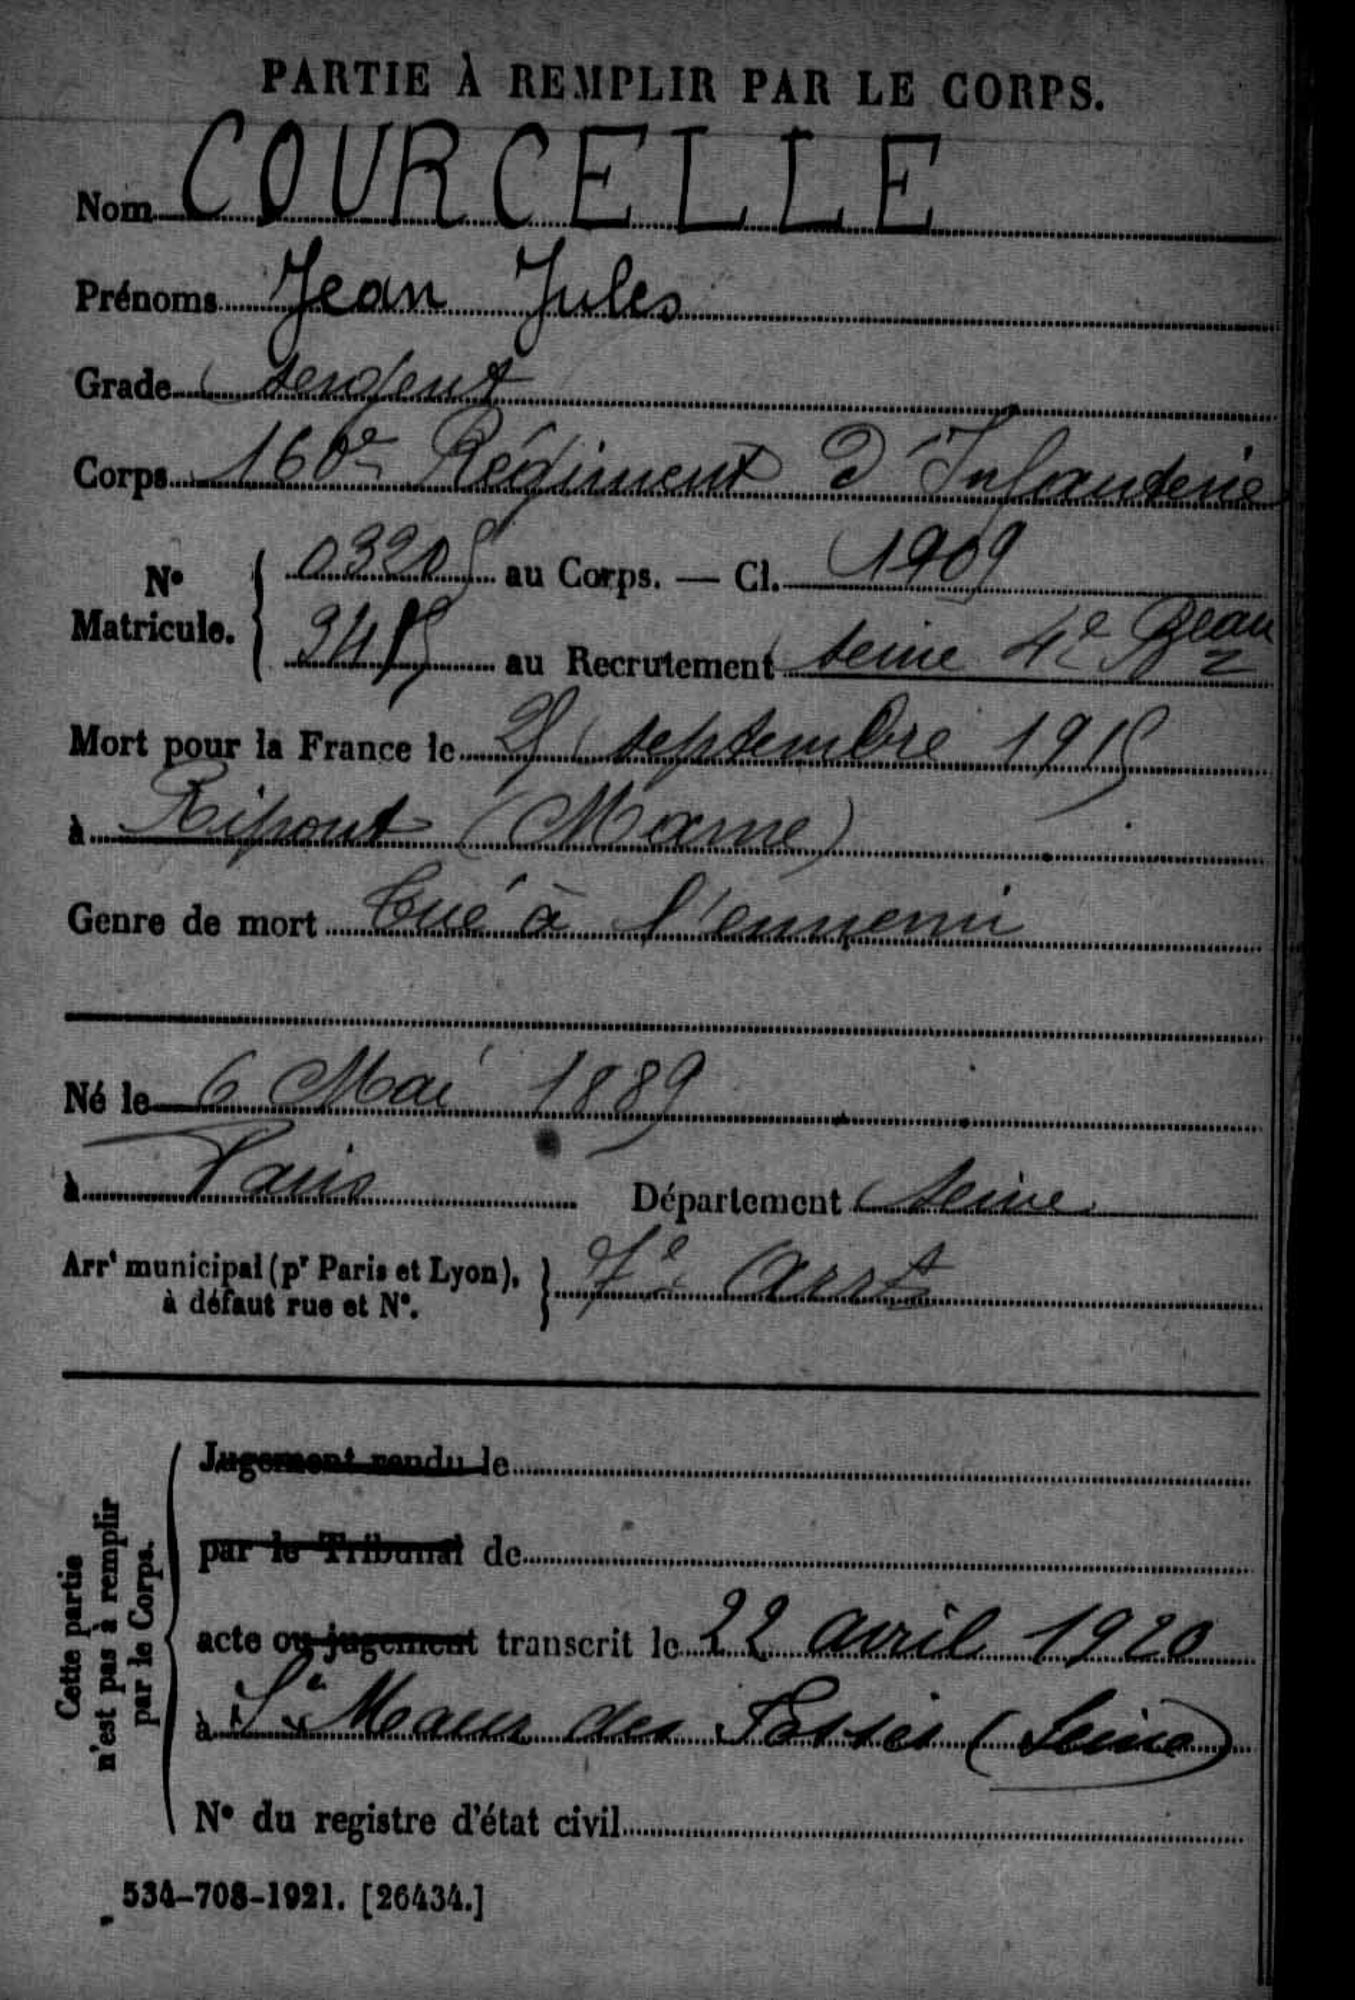 PARTIE À REMPLIR PAR LE CORPS.
Nom COURCELLE
Prénoms Jean Jules
Grade sergent
Corps 160e Régiment d'Infanterie
N° Matricule. 03205 au Corps. — Cl. 1909
3415 au Recrutement Seine 4e Beau
Mort pour la France le 25 septembre 1915
à Ripont (Marne)
Genre de mort tué à l'ennemi
Né le 6 Mai 1889
à Paris Département Seine
Arrt municipal (pr Paris et Lyon), à défaut rue et N°. 7e arrt
Cette partie n'est pas à remplir par le Corps.
Jugement rendu le
par le Tribunal de
acte ou jugement transcrit le 22 avril 1920
à St Maur des Fossés (Seine)
N° du registre d'état civil
534-708-1921. [26434.]